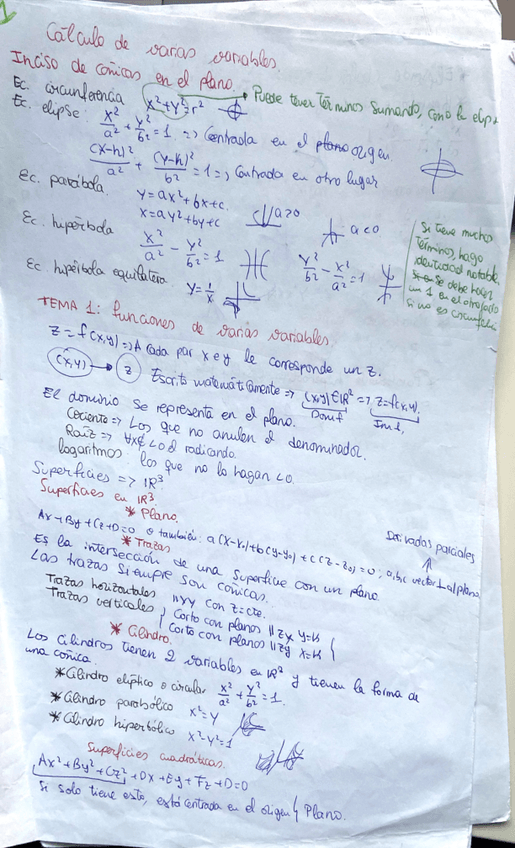 1
Cálculo de varias variables.
Inciso de cónicas en el plano.
Ec. circunferencia x²+y²=r² • Puede tener términos sumando, como la elipse
Ec. elipse: x²/a² + y²/b² = 1 => Centrada en el plano origen.
(x-h)²/a² + (y-k)²/b² = 1 => Centrada en otro lugar
Ec. parábola. y=ax²+bx+c. a>0
x=ay²+by+c a<0
Ec. hipérbola x²/a² - y²/b² = 1 y²/b² - x²/a² = 1
Ec. hipérbola equilatera y=1/x
Si tiene muchos
términos, hago
identidad notable.
se debe hacer
un 1 en el otro lado
si no es circunfe
TEMA 1: funciones de varias variables.
z=f(x,y)=>A cada par x e y le corresponde un z.
(x,y) z Escrito matemáticamente => (x,y)∈ℝ² => z=f(x,y).
Dom f Im f,
El dominio se representa en el plano.
Cociente => Los que no anulen el denominador.
Raíz => <0 el radicando.
logaritmos: los que no lo hagan <0.
Superficies => ℝ³
Superficies en ℝ³.
* Plano.
Ax+By+Cz+D=0 o también: a(x-x₀)+b(y-y₀)+c(z-z₀)=0; a,b,c vector ⊥ al plano
Derivadas parciales
* Trazas
Es la intersección de una superficie con un plano.
Las trazas siempre son cónicas.
Trazas horizontales || xy con z=cte.
Trazas verticales Corto con planos || zx y=k
Corto con planos || zy x=k
* Cilindro.
Los cilindros tienen 2 variables en ℝ² y tienen la forma de
una cónica.
* Cilindro elíptico o circular x²/a² + y²/b² = 1.
* Cilindro parabólico x²=y
* Cilindro hiperbólico x²-y²=1
Superficies cuadráticas.
Ax²+By²+Cz²+Dx+Ey+Fz+D=0
Si solo tiene esto, está centrada en el origen Plano.